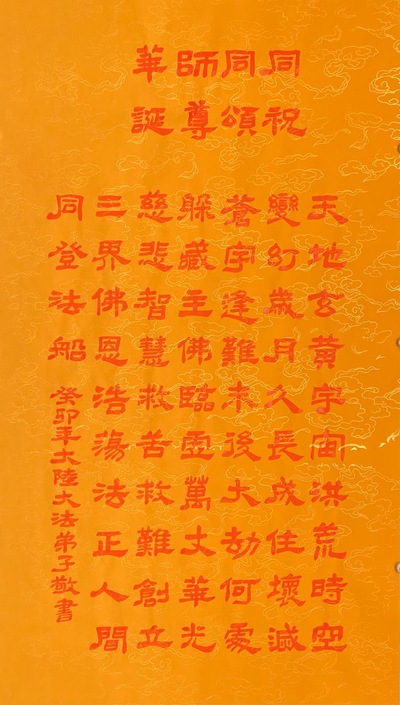 同祝
同頌
師尊
華誕
天地玄黃宇宙洪荒時空
變幻歲月久長成住壞滅
蒼宇逢難末後大劫何處
躲藏主佛臨世萬丈華光
慈悲智慧救苦救難創立
三界佛恩浩蕩法正人間
同登法船 癸卯年大陸大法弟子敬書